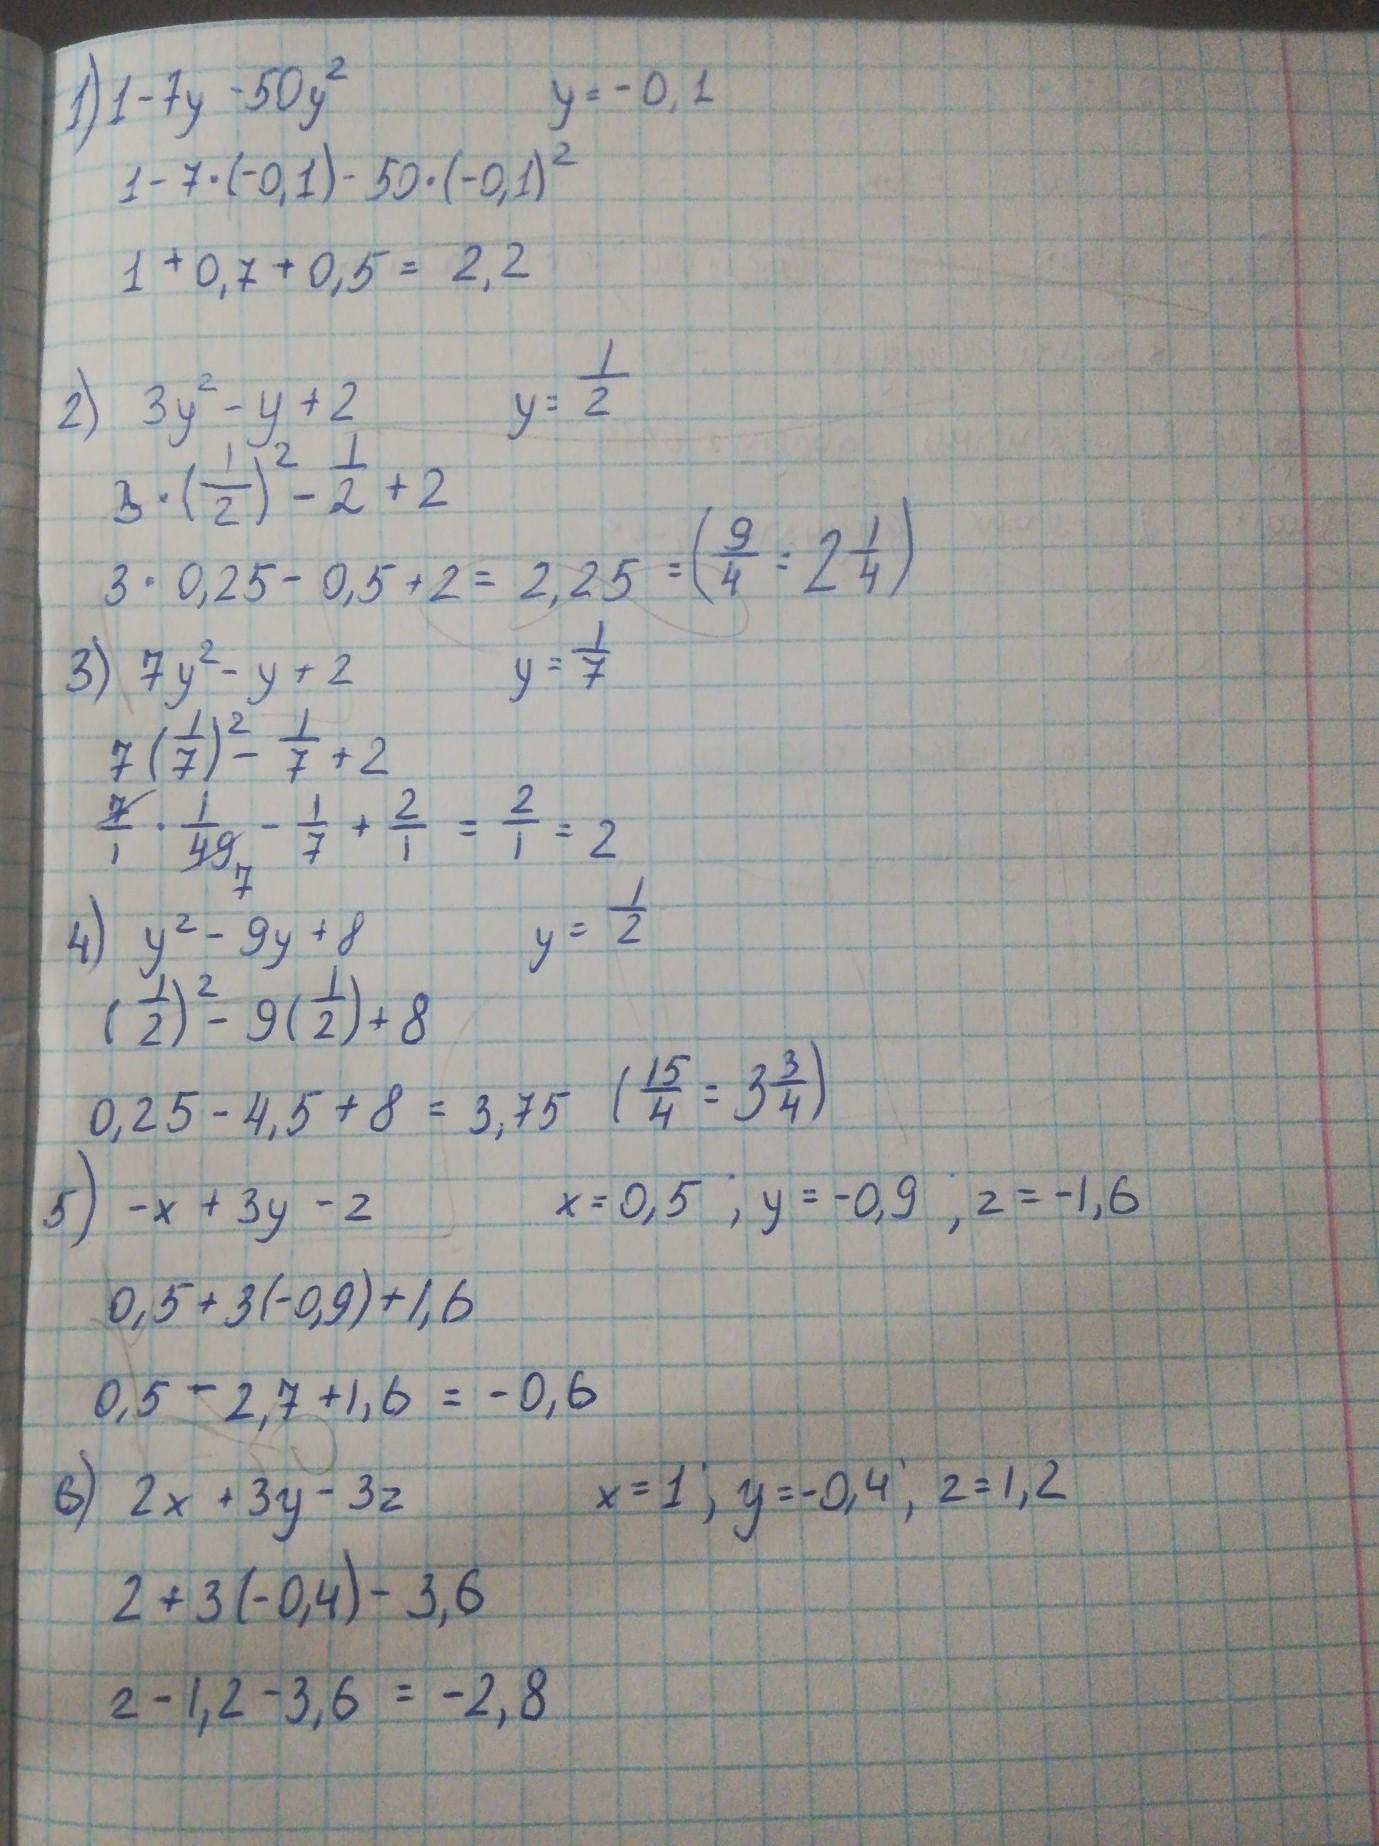 1) 1-7y-50y² y=-0,1
1-7·(-0,1)-50·(-0,1)²
1+0,7+0,5= 2,2
2) 3y²-y+2 y=1/2
3·(1/2)²-1/2+2
3·0,25-0,5+2= 2,25 =(9/4=2 1/4)
3) 7y²-y+2 y=1/7
7(1/7)²-1/7+2
7/1·1/49 7 -1/7+2/1=2/1=2
4) y²-9y+8 y=1/2
(1/2)²-9(1/2)+8
0,25-4,5+8=3,75 (15/4=3 3/4)
5) -x+3y-z x=0,5; y=-0,9; z=-1,6
0,5+3(-0,9)+1,6
0,5-2,7+1,6=-0,6
6) 2x+3y-3z x=1; y=-0,4; z=1,2
2+3(-0,4)-3,6
2-1,2-3,6=-2,8